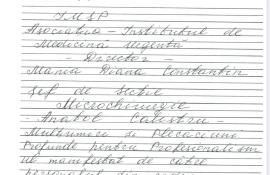 IMSP
Asociația - Institutul de
Medicină Urgentă
- Director -
Maria Diana Constantin
Șef de Secție
Microchirurgie
- Anatol Calistru -
Mulțumiri și Plecăciuni
Profunde pentru Profesionalism
ul manifestat de către